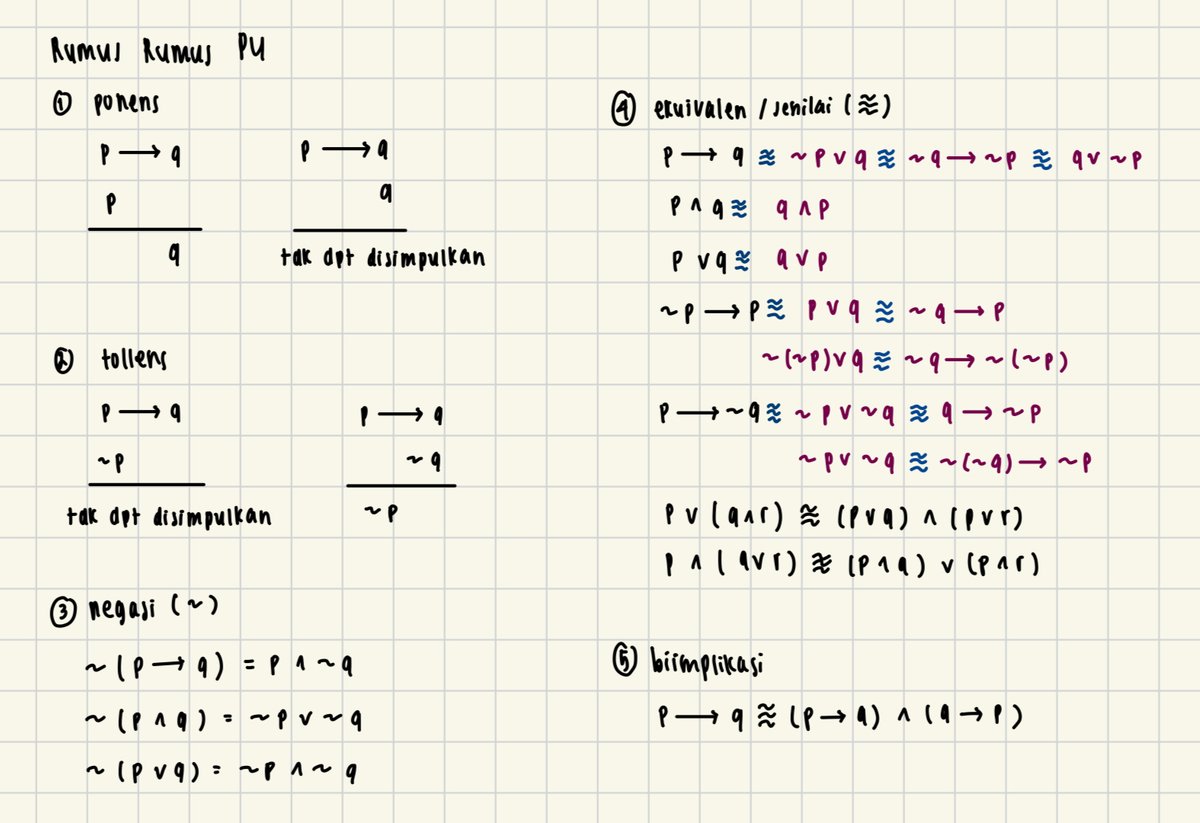 Rumus Rumus PU
① ponens
p → q
p
q
p → q
q
tak dpt disimpulkan
② tollens
p → q
~p
tak dpt disimpulkan
p → q
~q
~p
③ negasi (~)
~(p → q) = p ∧ ~q
~(p ∧ q) = ~p ∨ ~q
~(p ∨ q) = ~p ∧ ~q
④ ekuivalen / senilai (≋)
p → q ≋ ~p ∨ q ≋ ~q → ~p ≋ q ∨ ~p
p ∧ q ≋ q ∧ p
p ∨ q ≋ q ∨ p
~p → p ≋ p ∨ q ≋ ~q → p
~(~p) ∨ q ≋ ~q → ~(~p)
p → ~q ≋ ~p ∨ ~q ≋ q → ~p
~p ∨ ~q ≋ ~(~q) → ~p
p ∨ (q ∧ r) ≋ (p ∨ q) ∧ (p ∨ r)
p ∧ (q ∨ r) ≋ (p ∧ q) ∨ (p ∧ r)
⑤ biimplikasi
p → q ≋ (p → q) ∧ (q → p)